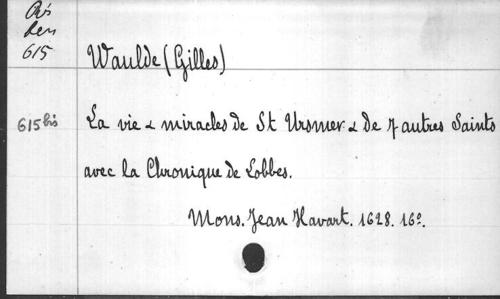 Rés
Len
615
Waulde (Gilles)
615 bis La vie & miracles de St Ursmer & de 7 autres Saints
avec la Chronique de Lobbes.
Mons. Jean Havart. 1628. 16º.